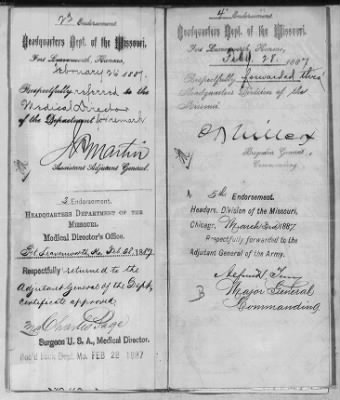 2d Endorsement.
Headquarters Dept. of the Missouri.
Fort Leavenworth, Kansas,
February 26 1887.
Respectfully referred to the
Medical Director
of the Department for remark
Martin
Assistant Adjutant General.
3 Endorsement.
HEADQUARTERS DEPARTMENT OF THE
MISSOURI.
Medical Director's Office.
Ft. Leavenworth, Ks. Feb. 28, 1887
Respectfully returned to the
Adjutant General of the Dept,
Certificate approved.
Charles Page
Surgeon U. S. A., Medical Director.
Rec'd Dept. Mo. FEB 28 1887
4" Endorsement
Headquarters Dept. of the Missouri.
Fort Leavenworth, Kansas,
Feby. 28, 1887
Respectfully forwarded thro'
Headquarters Division of the
Missouri
Brigadier General
Commanding
5th Endorsement.
Hdqrs. Division of the Missouri,
Chicago, March 2nd 1887
Respectfully forwarded to the
Adjutant General of the Army.
Alfred H. Terry
Major General
Commanding